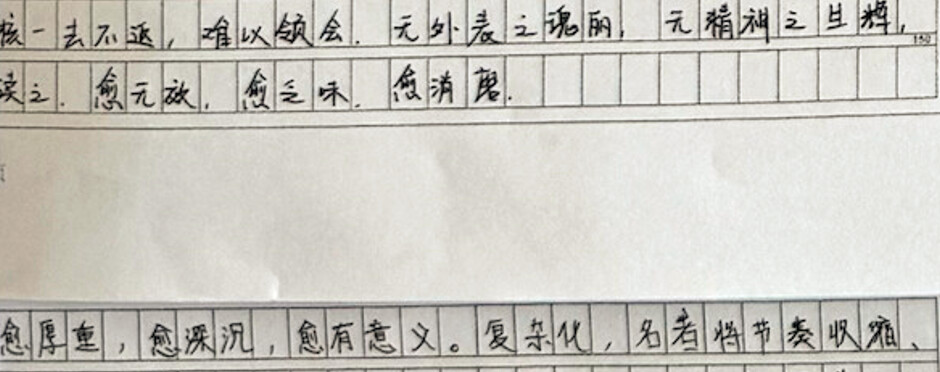 核一去不返，难以领会．无外表之瑰丽，无精神之旦辉，
150
读之．愈无放．愈乏味．愈消磨．
愈厚重，愈深沉，愈有意义。复杂化，名着将节奏收缩、